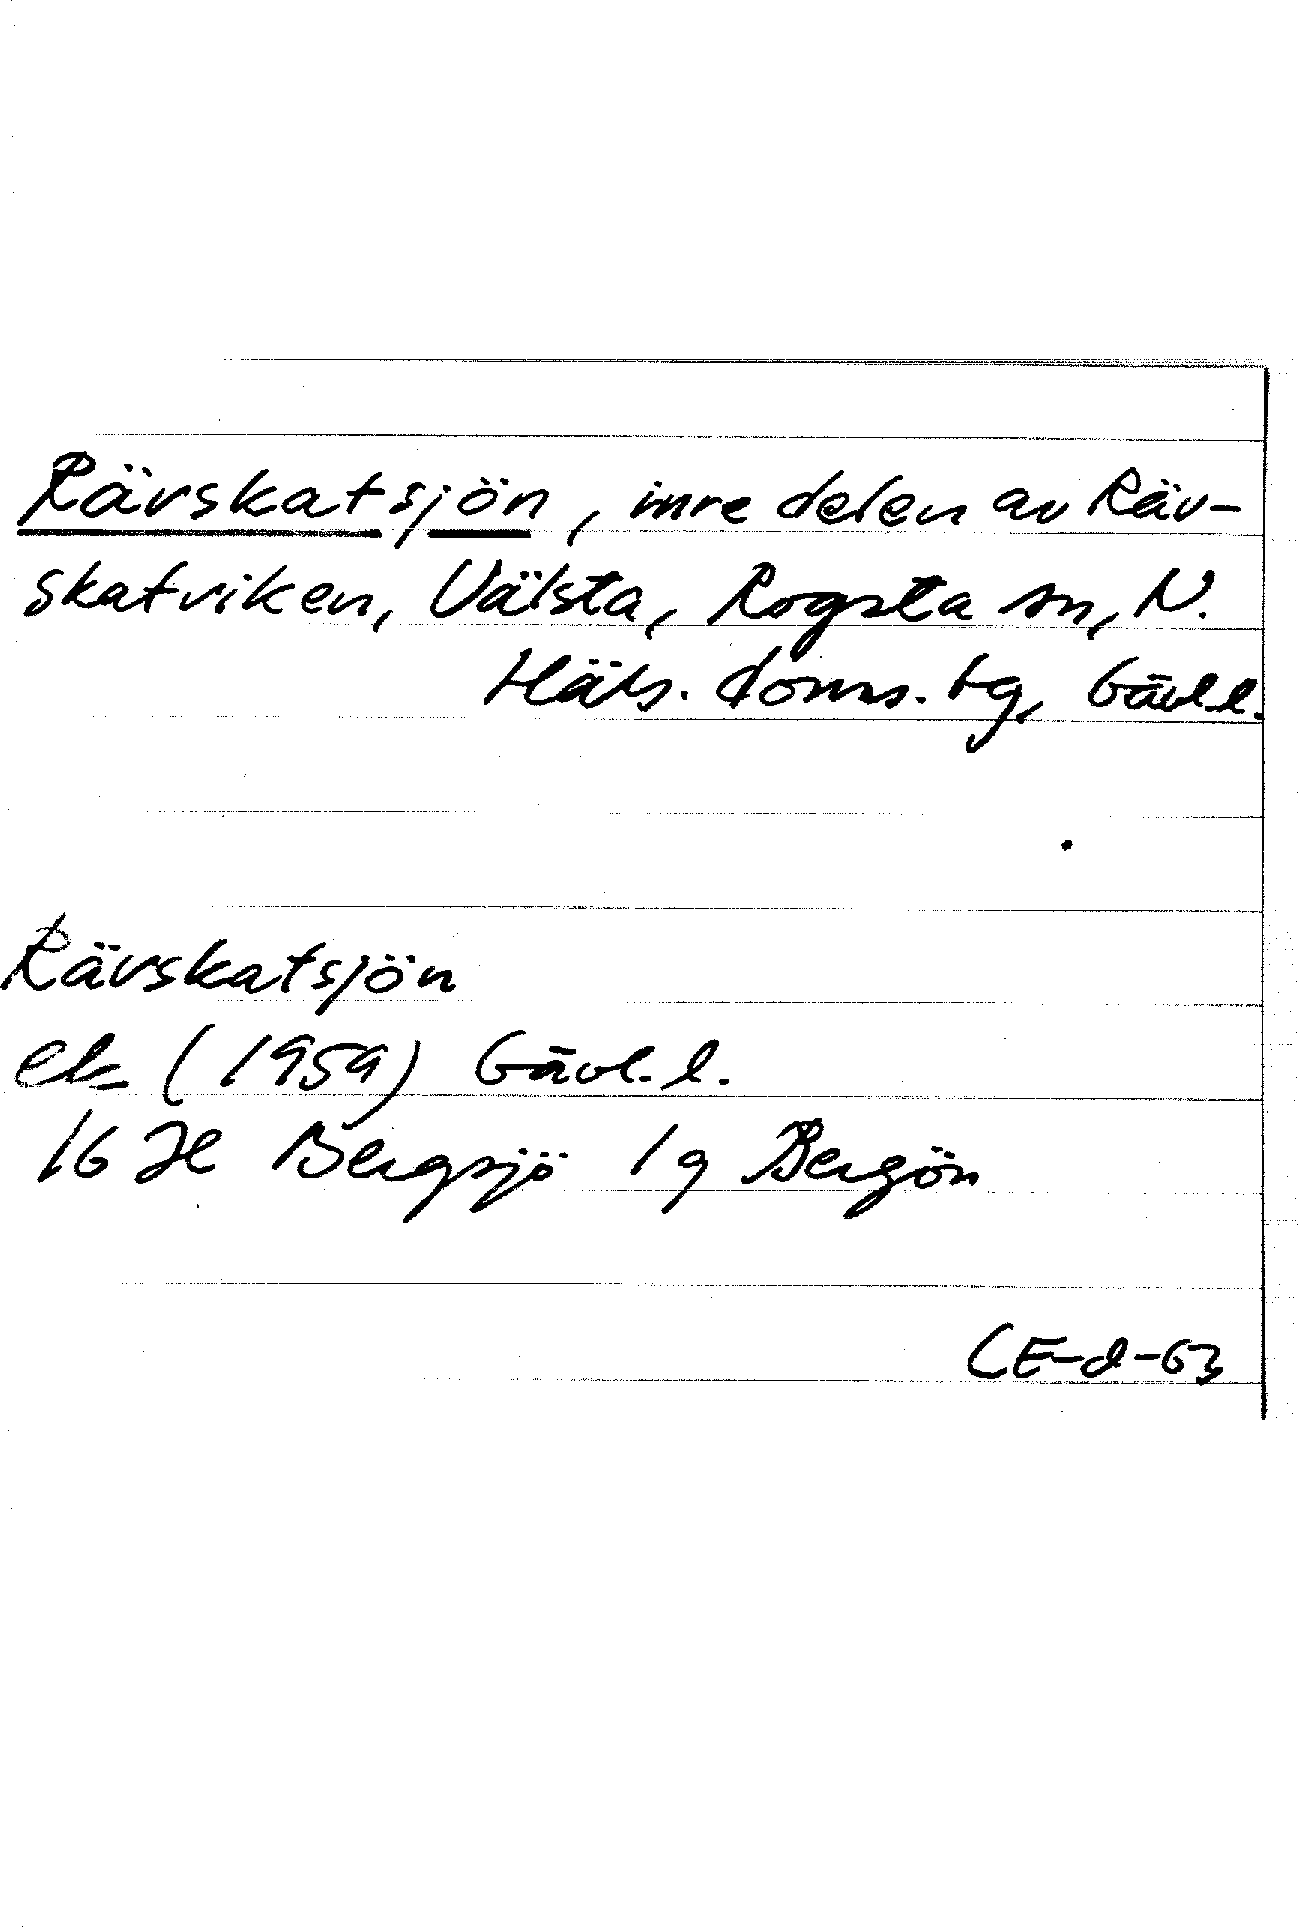 Rävskatsjön, inre delen av Räv-
skatviken, Välsta, Rogsta sn, N.
Häls. doms. tg, Gävl.l.
Rävskatsjön
ek (1959) Gävl.l.
16 H Bergsjö 1g Bergön
CE-d-63